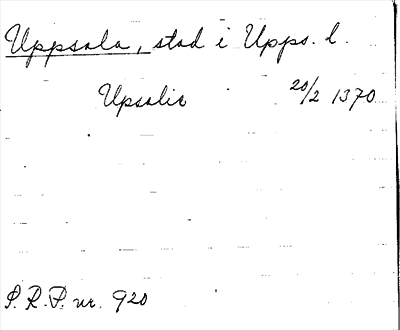 Uppsala, stad i Upps. l.
Upsalie 20/2 1370
P. R. P. nr. 920